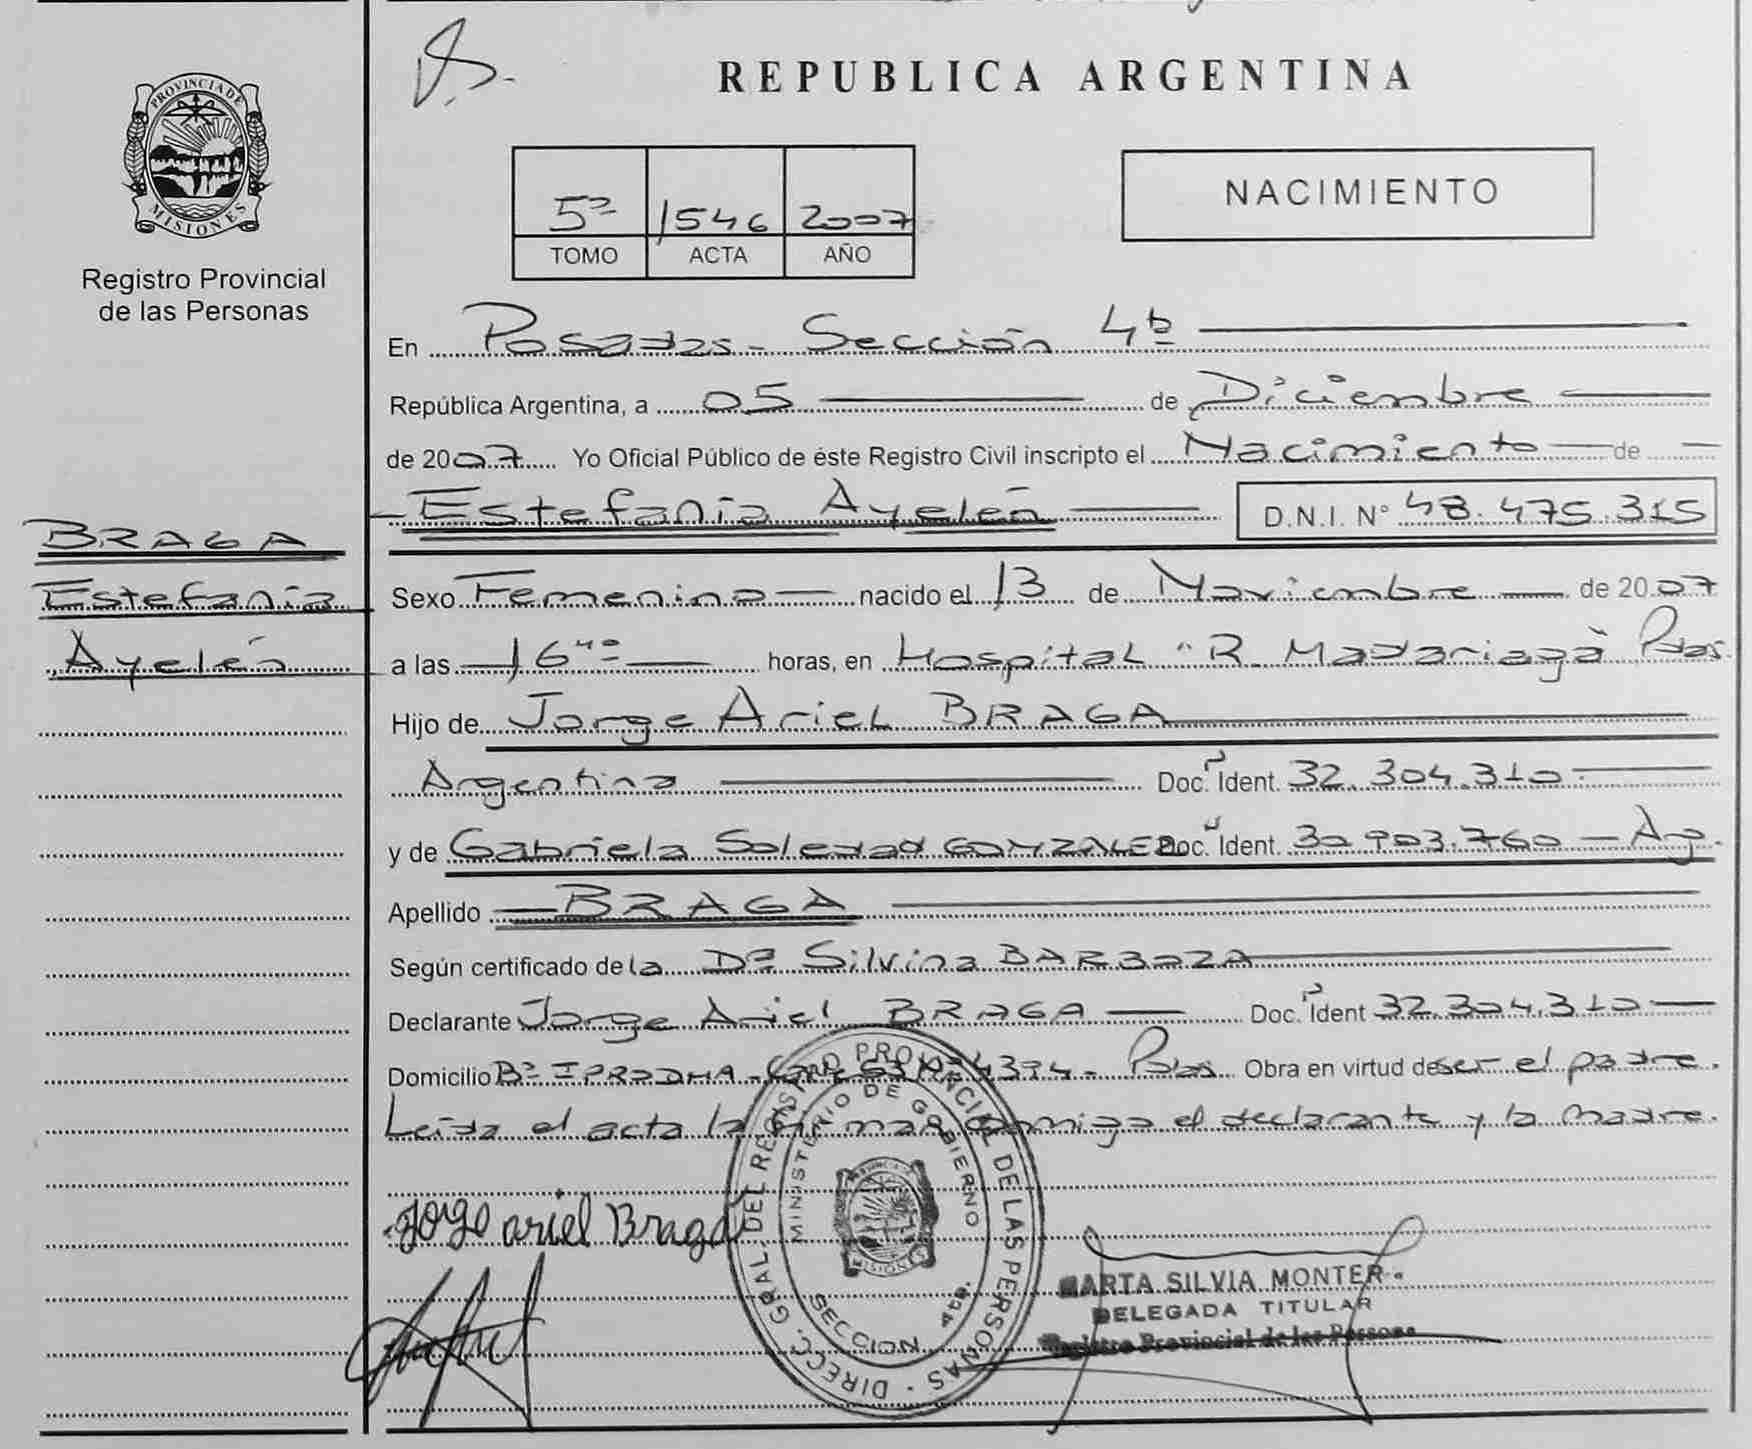 PROVINCIA DE
MISIONES
Registro Provincial
de las Personas
BRAGA
Estefanía
Ayelén
REPUBLICA ARGENTINA
5º 1546 2007
TOMO ACTA AÑO
NACIMIENTO
En Posadas - Sección 4ª
República Argentina, a 05 de Diciembre
de 2007 Yo Oficial Público de éste Registro Civil inscripto el Nacimiento de
Estefanía Ayelén D.N.I. Nº 48.475.315
Sexo Femenino nacido el 13 de Noviembre de 2007
a las 16 40 horas, en Hospital "R. Madariaga" Pdas.
Hijo de Jorge Ariel BRAGA
Argentina Doc. Ident. 32.304.310
y de Gabriela Soledad GONZALEZ Doc. Ident. 30.903.760 - Arg.
Apellido BRAGA
Según certificado de la Dª Silvina BARBOZA
Declarante Jorge Ariel BRAGA Doc. Ident 32.304.310
Domicilio Bº IPRODHA - 4394 - Pdas Obra en virtud de ser el padre.
Leída el acta la firman conmigo el declarante y la madre.
Jorge ariel Braga
DIRECC. GRAL. DEL REGISTRO PROVINCIAL DE LAS PERSONAS
MINISTERIO DE GOBIERNO
SECCION 4ta.
MISIONES
MARTA SILVIA MONTER
DELEGADA TITULAR
Registro Provincial de las Persona